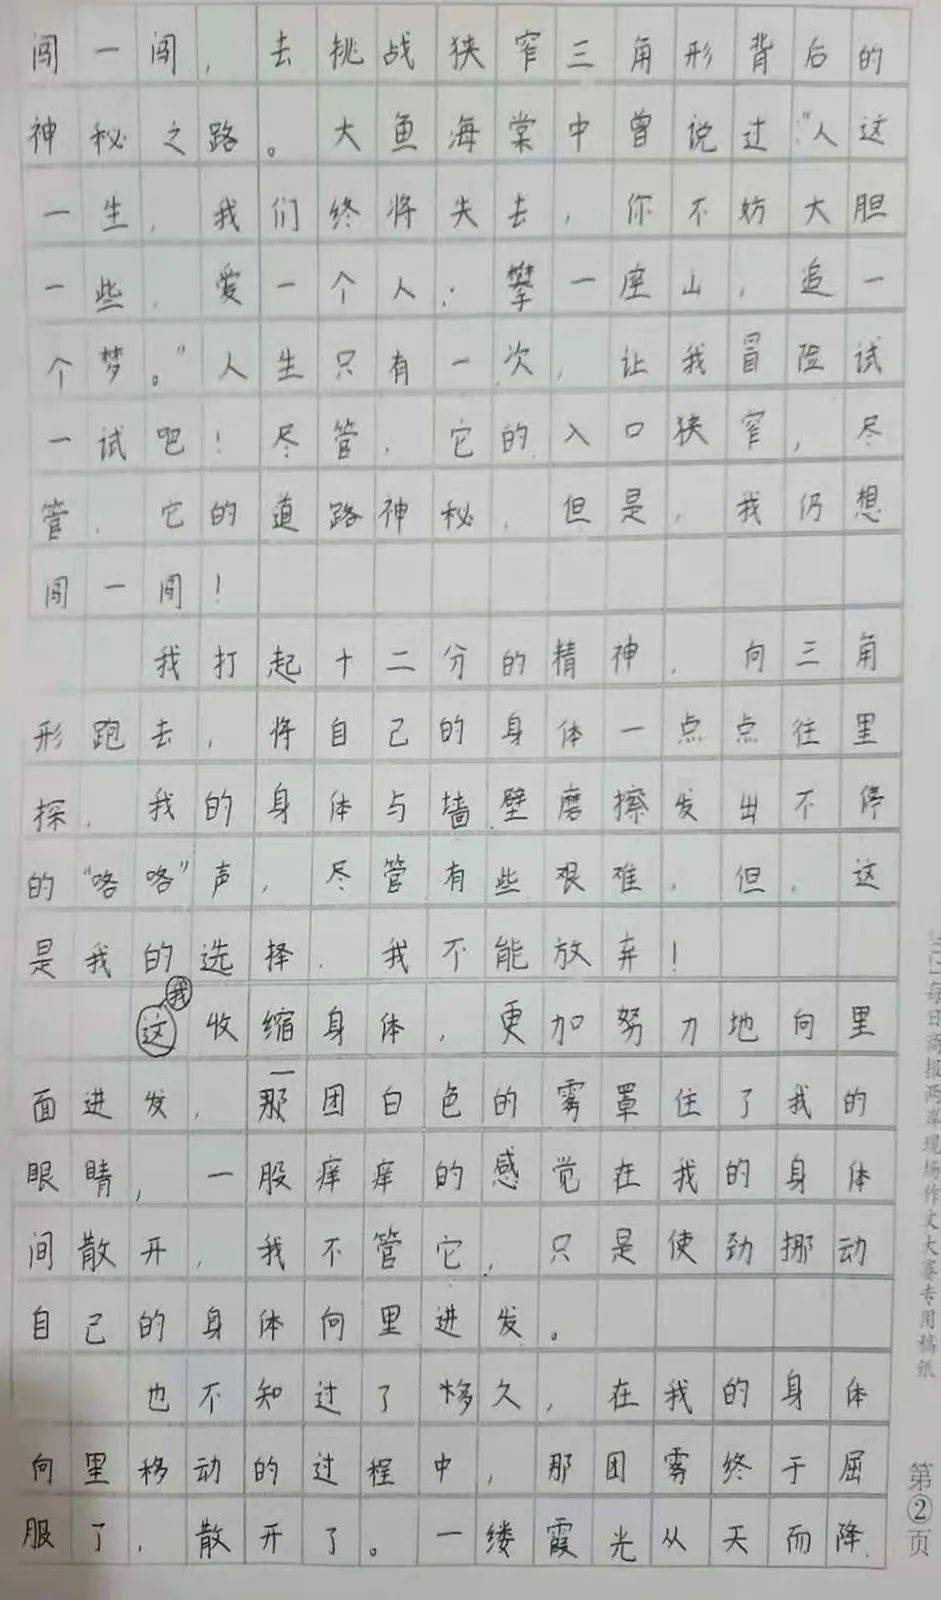 闯一闯，去挑战狭窄三角形背后的
神秘之路。大鱼海棠中曾说过“人这
一生，我们终将失去，你不妨大胆
一些，爱一个人，攀一座山，追一
个梦。”人生只有一次，让我冒险试
一试吧！尽管，它的入口狭窄，尽
管，它的道路神秘，但是，我仍想
闯一闯！
我打起十二分的精神，向三角
形跑去，将自己的身体一点点往里
探，我的身体与墙壁磨擦发出不停
的“咯咯”声，尽管有些艰难，但，这
是我的选择，我不能放弃！
我
这收缩身体，更加努力地向里
面进发，那团白色的雾罩住了我的
眼睛，一股痒痒的感觉在我的身体
间散开，我不管它，只是使劲挪动
自己的身体向里进发。
也不知过了多久，在我的身体
向里移动的过程中，那团雾终于屈
服了，散开了。一缕霞光从天而降，
每日商报两岸现场作文大赛专用稿纸
第②页